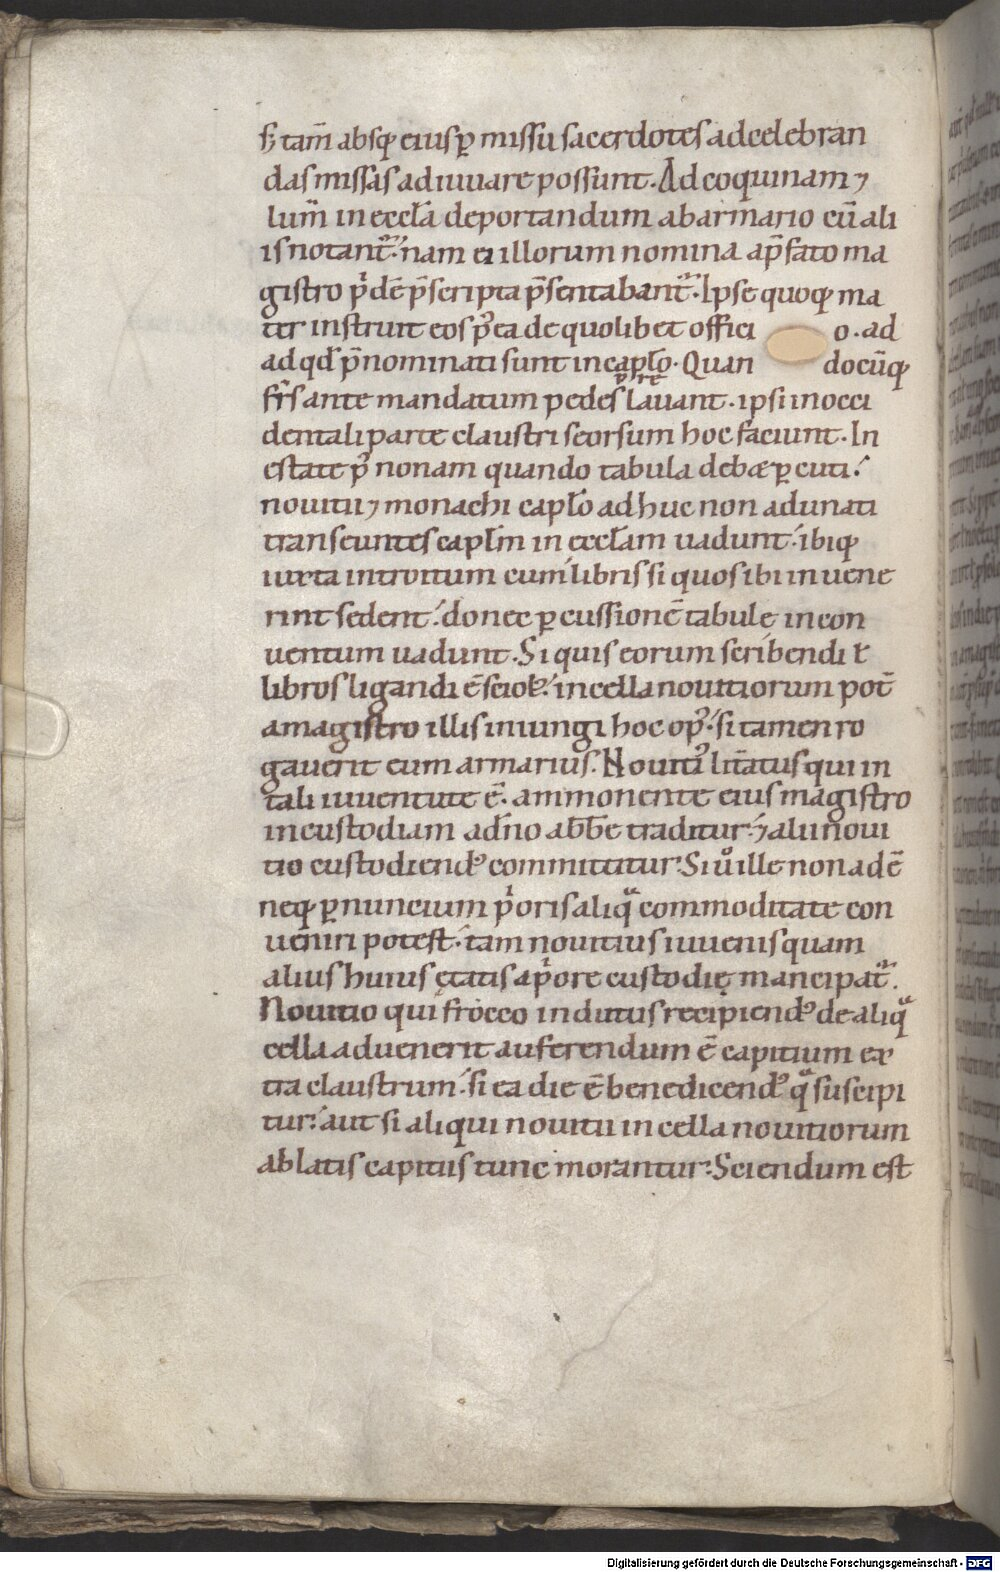 s; tam̄ absq; eius p̱missu sacerdotes ad celebran
das missas adiuuare possunt. Ad coquinam ⁊
lum̄ in eccl̄a deportandum ab armario cū ali
is notant᷑. nam ei illorum nomina a p̄fato ma
gistro p̍dē p̄scripta p̄sentabant᷑. Ipse quoq; ma
ter instruit eos p᷒ ea de quolibet offici o. ad
ad qd̄ p̄nominati sunt in caplo. Quan docūq;
fr̄s ante mandatum pedes lauant. ipsi in occi
dentali parte claustri seorsum hoc faciunt. In
estate p᷒ nonam quando tabula debæ p̱cuti.
nouitii ⁊ monachi caplo adhuc non adunati
transeuntes caplm̄ in eccl̄am uadunt. ibiq;
iuxta introitum cum libris si quos ibi inuene
rint sedent. donec p̱cussionē tabulę in con
uentum uadunt. Si quis eorum scribendi ł
libros ligandi ē scioł. in cella nouitiorum pot̄
a magistro illis iniungi hoc op᷒. si tamen ro
gauerit eum armarius. Nouiti᷒ litatus qui in
tali iuuentute ē. ammonente eius magistro
in custodiam a dn̄o abb̄e traditur. ⁊ alii noui
tio custodiend᷒ committitur. Si ů ille non adē
neq; p̱ nuncium p̍oris aliqᵃ commoditate con
ueniri potest. tam nouitius iuuenis quam
alius huius ętatis a p̍ore custodię mancipat᷑.
Nouitio qui frocco indutus recipiend᷒ de aliqᵃ
cella aduenerit auferendum ē capitium ex
tra claustrum. si ea die ē benedicend᷒ qᵃ suscipi
tur. aut si aliqui nouitii in cella nouitiorum
ablatis capitiis tunc morantur. Sciendum est
Digitalisierung gefördert durch die Deutsche Forschungsgemeinschaft - DFG